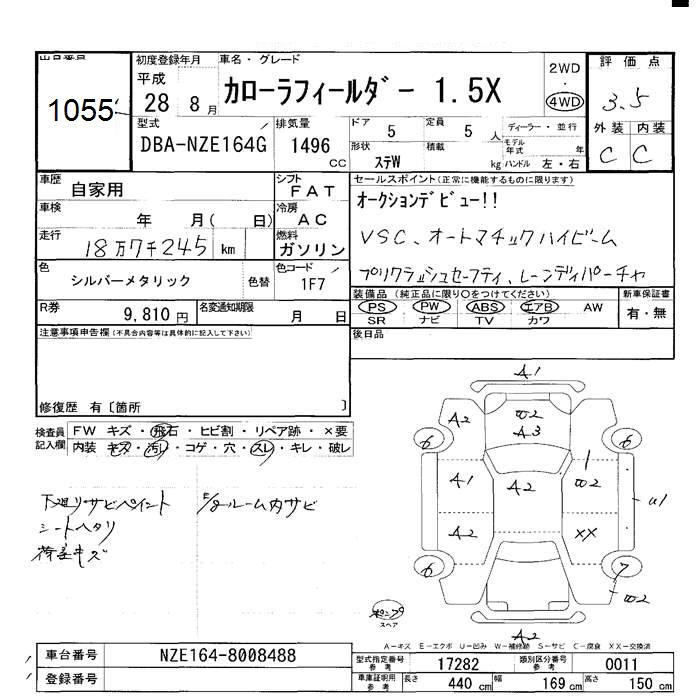 出品番号
1055
初度登録年月
平成
28 8月
車名・グレード
カローラフィールダー 1.5X
2WD
・
4WD
評価点
3.5
外装 内装
C C
型式
DBA-NZE164G
排気量
1496
cc
ドア
5
定員
5
人
形状
ステW
積載
kg
ディーラー・並行
モデル年式
年
ハンドル 左・右
車歴
自家用
シフト
FAT
車検
年 月( 日)
冷房
AC
走行
18万7千245 km
燃料
ガソリン
色
シルバーメタリック
色替
色コード
1F7
R券
9,810円
名変通知期限
月 日
セールスポイント(正常に機能するものに限ります)
オークションデビュー!!
VSC、オートマチックハイビーム
プリクラッシュセーフティ、レーンディパーチャ
装備品 (純正品に限り○をつけてください)
PS ・ PW ・ ABS ・ エアB ・ AW
SR ナビ TV カワ
新車保証書
有・無
後日品
注意事項申告欄 (不具合内容等は具体的に記入して下さい)
修復歴 有〔箇所 〕
検査員
記入欄
FW キズ・飛石・ヒビ割・リペア跡・×要
内装 キズ・汚レ・コゲ・穴・スレ・キレ・破レ
下廻リサビペイント
シートヘタリ
荷室キズ
F/gルーム内サビ
A1
A2
W2
A3
6
6
A1
A2
1
W2
U1
A2
XX
6
7
W2
A2
ポンプ
スペア
A-キズ E-エクボ U-凹み W-補修跡 S-サビ C-腐食 XX-交換済
車台番号
NZE164-8008488
登録番号
型式指定番号
参考
17282
類別区分番号
参考
0011
車庫証明用
参考
長さ
440 cm
幅
169 cm
高さ
150 cm